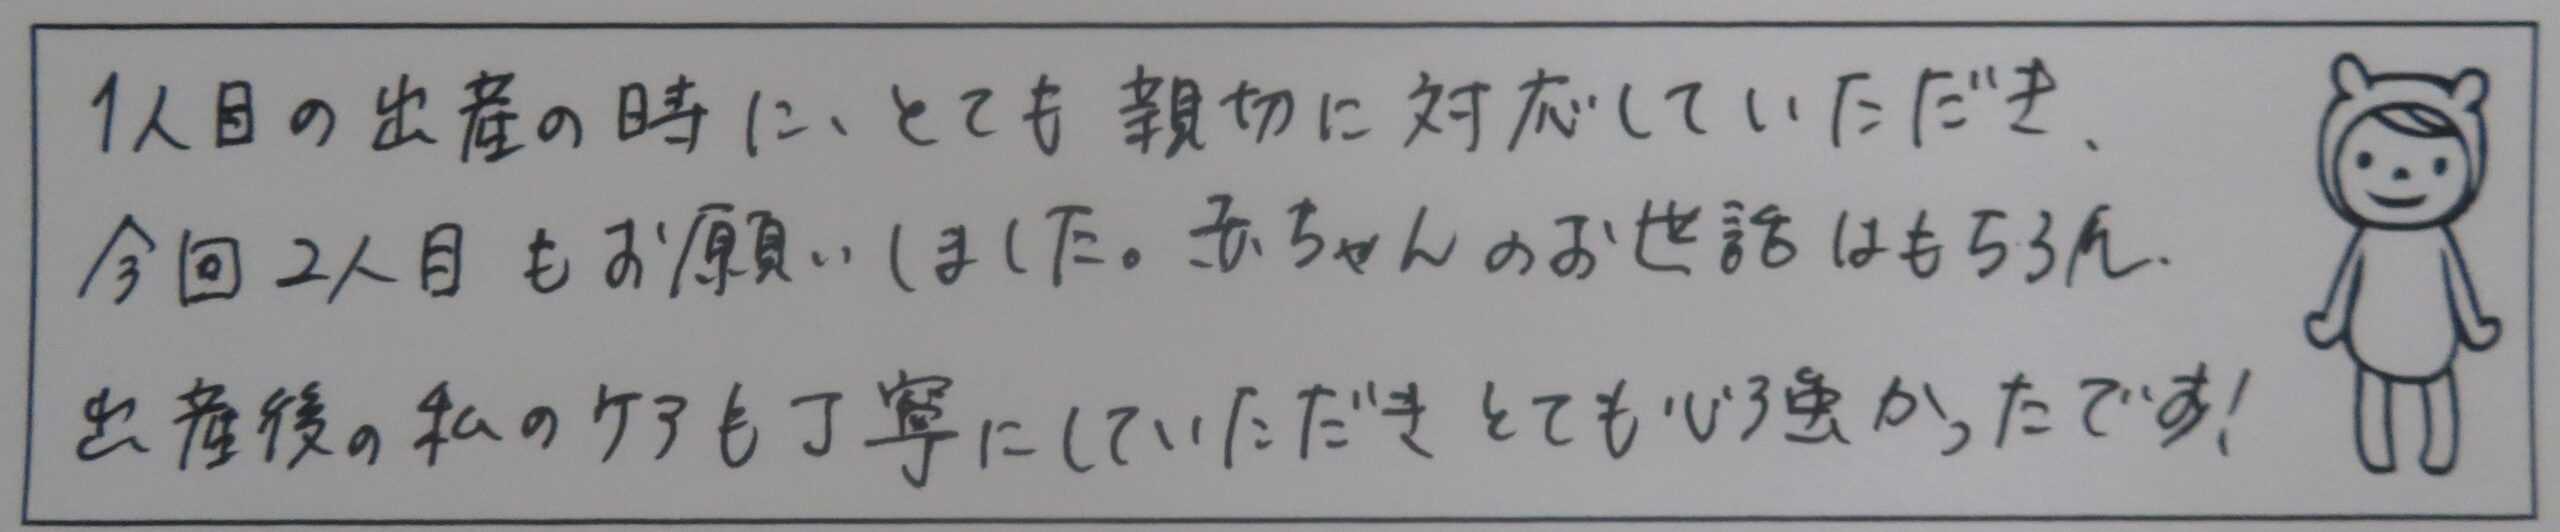 1人目の出産の時に、とても親切に対応していただき、
今回2人目もお願いしました。赤ちゃんのお世話はもちろん、
出産後の私のケアも丁寧にしていただきとても心強かったです!